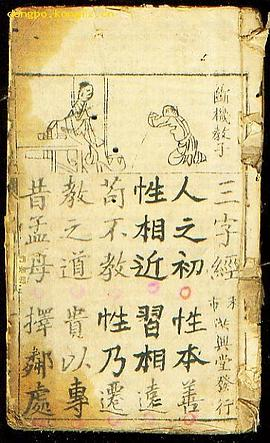 斷機教子
三字經
興堂發行
人之初 性本善
性相近 習相遠
苟不教 性乃遷
教之道 貴以專
昔孟母 擇鄰處